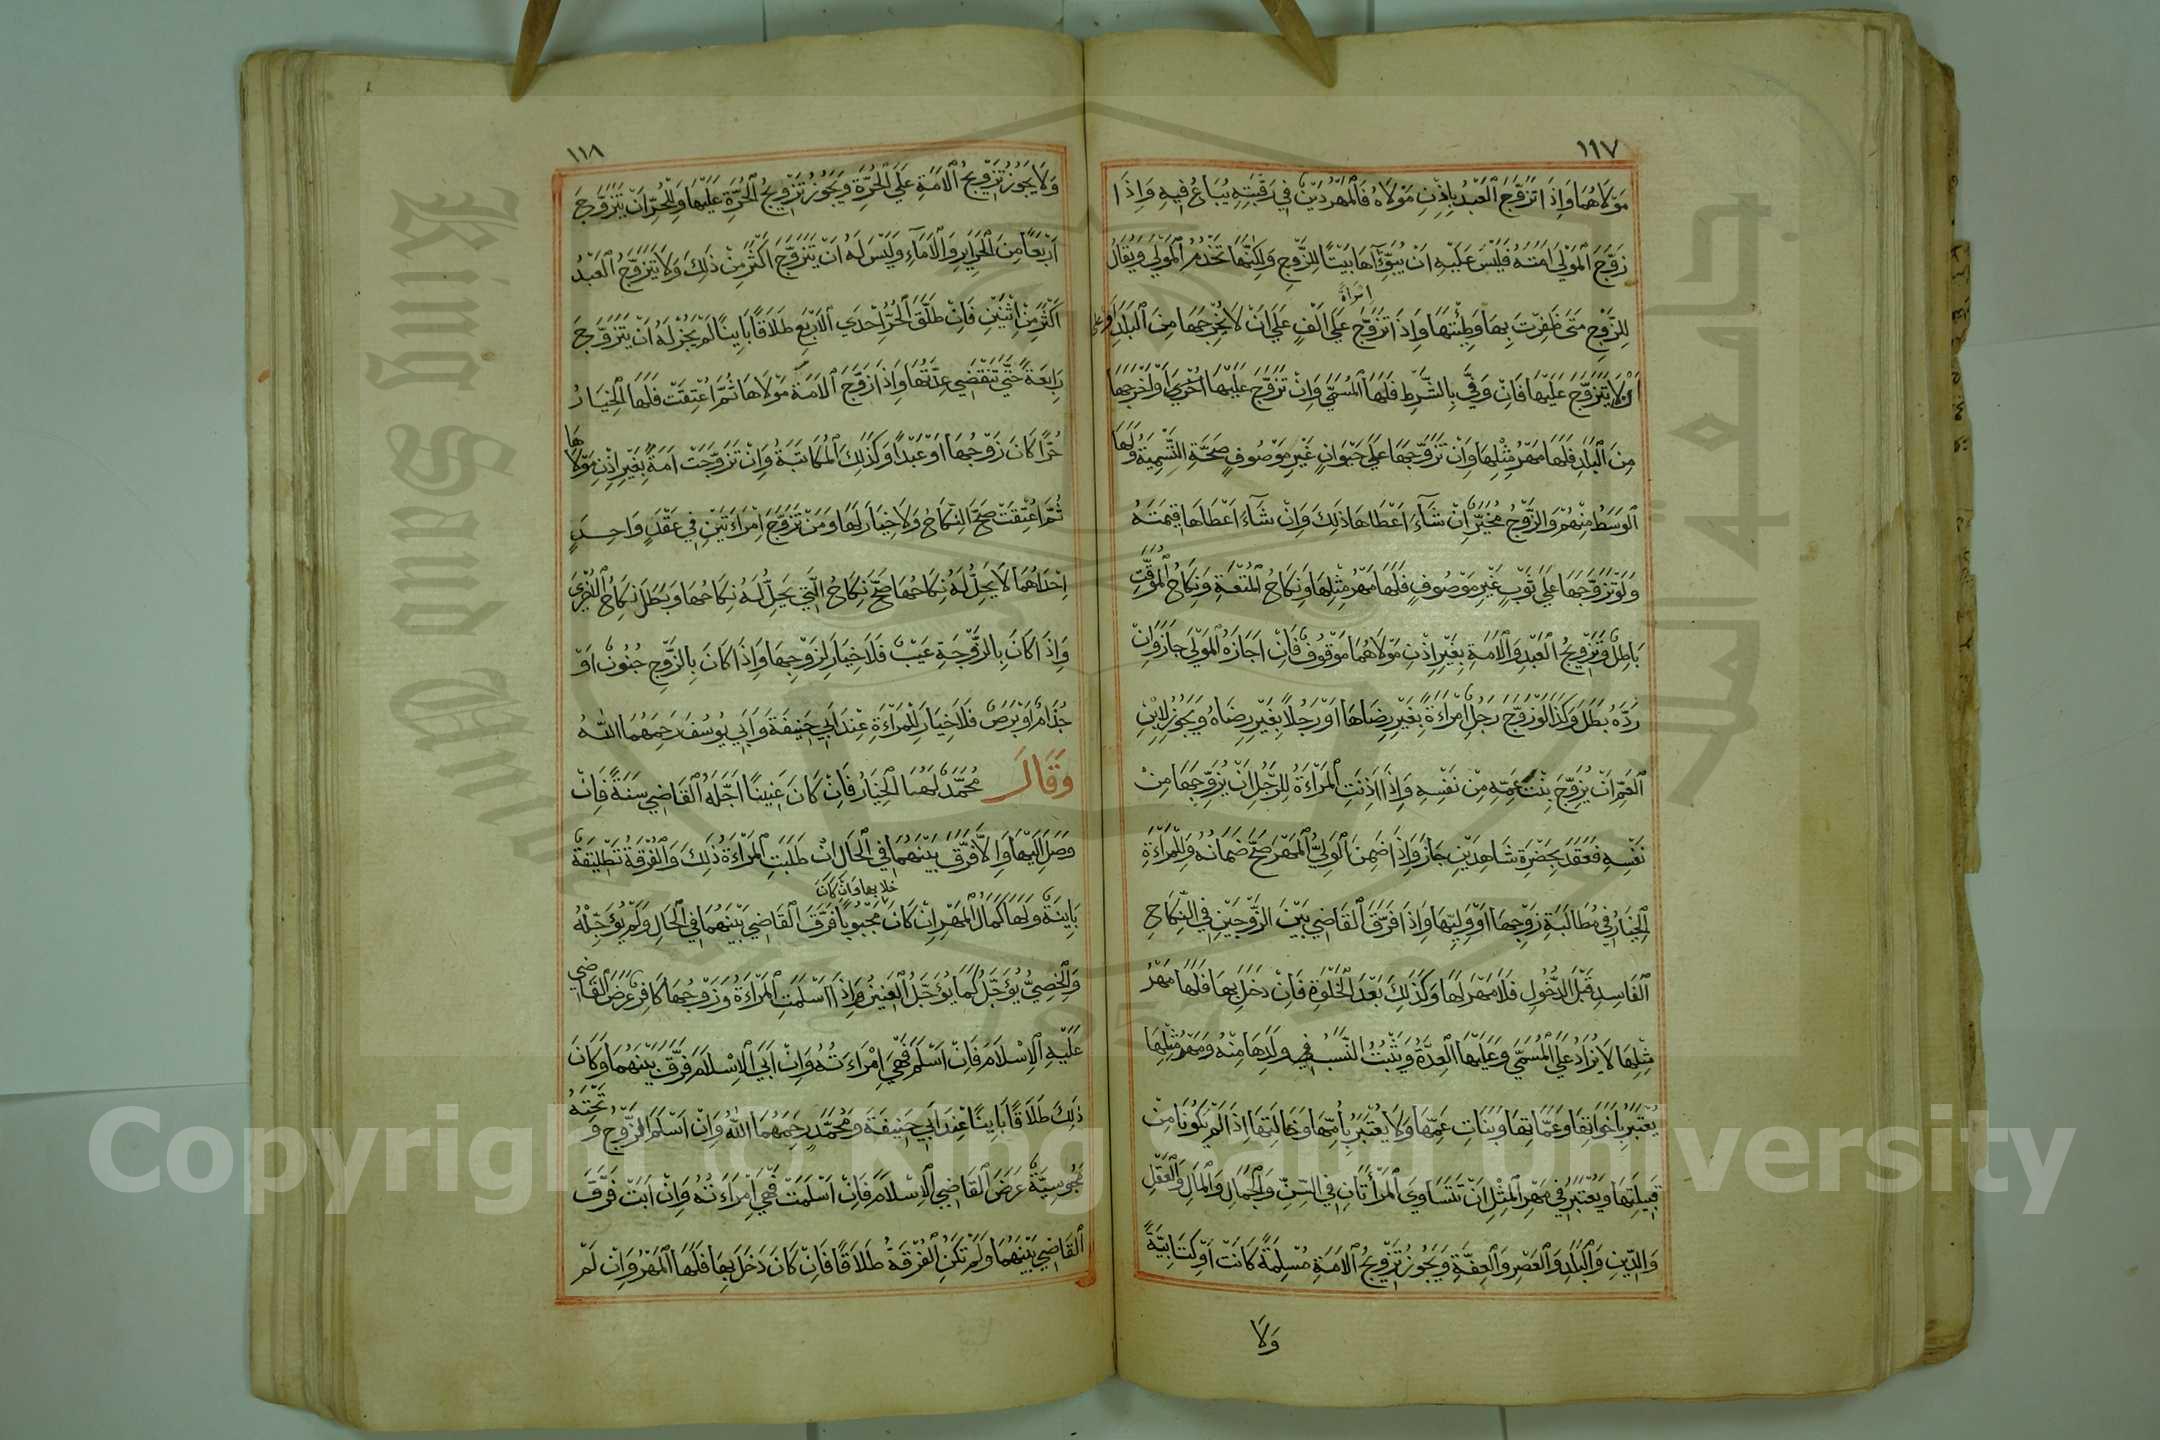 ١١٧
مَوْلَاهُمَا وَاِذَا تَزَوَّجَ الْعَبْدُ بِاِذْنِ مَوْلَاهُ فَالْمَهْرُ دَيْنٌ فِي رَقَبَتِهِ يُبَاعُ فِيهِ وَاِذَا
زَوَّجَ الْمَوْلَى اَمَتَهُ فَلَيْسَ عَلَيْهِ اَنْ يُبَوِّئَهَا بَيْتًا لِلزَّوْجِ وَلَكِنَّهَا تَخْدُمُ الْمَوْلَى وَيُقَالُ
لِلزَّوْجِ مَتَى ظَفِرْتَ بِهَا وَطِئْتَهَا وَاِذَا تَزَوَّجَ امْرَاَةً عَلَى اَلْفٍ عَلَى اَنْ لَا يُخْرِجَهَا مِنَ الْبَلَدِ اَوْ عَلَى
اَنْ لَا يَتَزَوَّجَ عَلَيْهَا فَاِنْ وَفَى بِالشَّرْطِ فَلَهَا الْمُسَمَّى وَاِنْ تَزَوَّجَ عَلَيْهَا اُخْرَى اَوْ اَخْرَجَهَا
مِنَ الْبَلَدِ فَلَهَا مَهْرُ مِثْلِهَا وَاِنْ تَزَوَّجَهَا عَلَى حَيَوَانٍ غَيْرِ مَوْصُوفٍ صَحَّةِ التَّسْمِيَةُ وَلَهَا
الْوَسَطُ مِنْهُمْ وَالزَّوْجُ مُخَيَّرٌ اِنْ شَآءَ اَعْطَاهَا ذَلِكَ وَاِنْ شَآءَ اَعْطَاهَا قِيمَتَهُ
وَلَوْ تَزَوَّجَهَا عَلَى ثَوْبٍ غَيْرِ مَوْصُوفٍ فَلَهَا مَهْرُ مِثْلِهَا وَنِكَاحُ الْمُتْعَةِ وَنِكَاحُ الْمُوَقَّتِ
بَاطِلٌ وَتَزْوِيجُ الْعَبْدِ وَالْاَمَةِ بِغَيْرِ اِذْنِ مَوْلَاهُمَا مَوْقُوفٌ فَاِنْ اَجَازَهُ الْمَوْلَى جَازَ وَاِنْ
رَدَّهُ بَطَلَ وَكَذَا لَوْ زَوَّجَ رَجُلٌ امْرَاَةً بِغَيْرِ رِضَاهَا اَوْ رَجُلًا بِغَيْرِ رِضَاهُ وَيَجُوزُ لِابْنِ
الْعَمِّ اَنْ يُزَوِّجَ بِنْتَ عَمِّهِ مِنْ نَفْسِهِ وَاِذَا اَذِنَتِ الْمَرْاَةُ لِلرَّجُلِ اَنْ يُزَوِّجَهَا مِنْ
نَفْسِهِ فَعَقَدَ بِحَضْرَةِ شَاهِدَيْنِ جَازَ وَاِذَا ضَمِنَ الْوَلِيُّ الْمَهْرَ صَحَّ ضَمَانُهُ وَلِلْمَرْاَةِ
الْخِيَارُ فِي مُطَالَبَةِ زَوْجِهَا اَوْ وَلِيِّهَا وَاِذَا فَرَّقَ الْقَاضِي بَيْنَ الزَّوْجَيْنِ فِي النِّكَاحِ
الْفَاسِدِ قَبْلَ الدُّخُولِ فَلَا مَهْرَ لَهَا وَكَذَلِكَ بَعْدَ الْخَلْوَةِ فَاِنْ دَخَلَ بِهَا فَلَهَا مَهْرُ
مِثْلِهَا لَا يُزَادُ عَلَى الْمُسَمَّى وَعَلَيْهَا الْعِدَّةُ وَيَثْبُتُ النَّسَبُ فِي وَلَدِهَا مِنْهُ وَمَهْرُ مِثْلِهَا
يُعْتَبَرُ بِاَخَوَاتِهَا وَعَمَّاتِهَا وَبَنَاتِ عَمِّهَا وَلَا يُعْتَبَرُ بِاُمِّهَا وَخَالَتِهَا اِذَا لَمْ يَكُونَا مِنْ
قَبِيلَتِهَا وَيُعْتَبَرُ فِي مَهْرِ الْمِثْلِ اَنْ تَتَسَاوَى الْمَرْاَتَانِ فِي السِّنِّ وَالْجَمَالِ وَالْمَالِ وَالْعَقْلِ
وَالدِّينِ وَالْبَلَدِ وَالْعَصْرِ وَالْعِفَّةِ وَيَجُوزُ تَزْوِيجُ الْاَمَةِ مُسْلِمَةً كَانَتْ اَوْ كِتَابِيَّةً
وَلَا
١١٨
وَلَا يَجُوزُ تَزْوِيجُ الْاَمَةِ عَلَى الْحُرَّةِ وَيَجُوزُ تَزْوِيجُ الْحُرَّةِ عَلَيْهَا وَلِلْحُرِّ اَنْ يَتَزَوَّجَ
اَرْبَعًا مِنَ الْحَرَايِرِ وَالْاِمَآءِ وَلَيْسَ لَهُ اَنْ يَتَزَوَّجَ اَكْثَرَ مِنْ ذَلِكَ وَلَا يَتَزَوَّجُ الْعَبْدُ
اَكْثَرَ مِنْ اثْنَيْنِ فَاِنْ طَلَّقَ الْحُرُّ اِحْدَى الْاَرْبَعِ طَلَاقًا بَايِنًا لَمْ يَجُزْ لَهُ اَنْ يَتَزَوَّجَ
رَابِعَةً حَتَّى تَنْقَضِي عِدَّتُهَا وَاِذَا زَوَّجَ الْاَمَةَ مَوْلَاهَا ثُمَّ اُعْتِقَتْ فَلَهَا الْخِيَارُ
حُرًّا كَانَ زَوْجُهَا اَوْ عَبْدًا وَكَذَلِكَ الْمُكَاتَبَةُ وَاِنْ تَزَوَّجَتْ اَمَةٌ بِغَيْرِ اِذْنِ مَوْلَاهَا
ثُمَّ اُعْتِقَتْ صَحَّ النِّكَاحُ وَلَا خِيَارَ لَهَا وَمَنْ تَزَوَّجَ اِمْرَاَتَيْنِ فِي عَقْدٍ وَاحِدٍ
اِحْدَاهُمَا لَا يَحِلُّ لَهُ نِكَاحُهَا صَحَّ نِكَاحُ الَّتِي يَحِلُّ لَهُ نِكَاحُهَا وَبَطَلَ نِكَاحُ الْاُخْرَى
وَاِذَا كَانَ بِالزَّوْجَةِ عَيْبٌ فَلَا خِيَارَ لِزَوْجِهَا وَاِذَا كَانَ بِالزَّوْجِ جُنُونٌ اَوْ
جُذَامٌ اَوْ بَرَصٌ فَلَا خِيَارَ لِلْمَرْاَةِ عِنْدَ اَبِي حَنِيفَةَ وَاَبِي يُوسُفَ رَحِمَهُمَا اللهُ
وَقَالَ مُحَمَّدٌ لَهَا الْخِيَارُ فَاِنْ كَانَ عَنِينًا اَجَّلَهُ الْقَاضِي سَنَةً فَاِنْ
وَصَلَ اِلَيْهَا وَاِلَّا فَرَّقَ بَيْنَهُمَا فِي الْحَالِ اِنْ طَلَبَتِ الْمَرْاَةُ ذَلِكَ وَالْفُرْقَةُ تَطْلِيقَةٌ
بَايِنَةٌ وَلَهَا كَمَالُ الْمَهْرِ اِنْ كَانَ خلا بها وان كان مَجْبُوبًا فَرَّقَ الْقَاضِي بَيْنَهُمَا فِي الْحَالِ وَلَمْ يُؤَجِّلْهُ
وَالْخَصِيُّ يُؤَجَّلُ كَمَا يُؤَجَّلُ الْعَنِينُ وَاِذَا اَسْلَمَتِ الْمَرْاَةُ وَزَوْجُهَا كَافِرٌ عَرَضَ الْقَاضِي
عَلَيْهِ الْاِسْلَامَ فَاِنْ اَسْلَمَ فَهِيَ اِمْرَاَتُهُ وَاِنْ اَبَى الْاِسْلَامَ فَرَّقَ بَيْنَهُمَا وَكَانَ
ذَلِكَ طَلَاقًا بَايِنًا عِنْدَ اَبِي حَنِيفَةَ وَمُحَمَّدٍ رَحِمَهُمَا اللهُ وَاِنْ اَسْلَمَ الزَّوْجُ وَتَحْتَهُ
مَجُوسِيَّةٌ عَرَضَ الْقَاضِي الْاِسْلَامَ فَاِنْ اَسْلَمَتْ فَهِيَ اِمْرَاَتُهُ وَاِنْ اَبَتْ فَرَّقَ
الْقَاضِي بَيْنَهُمَا وَلَمْ تَكُنِ الْفُرْقَةُ طَلَاقًا فَاِنْ كَانَ دَخَلَ بِهَا فَلَهَا الْمَهْرُ وَاِنْ لَمْ
King Saud University
Copyright © King Saud University